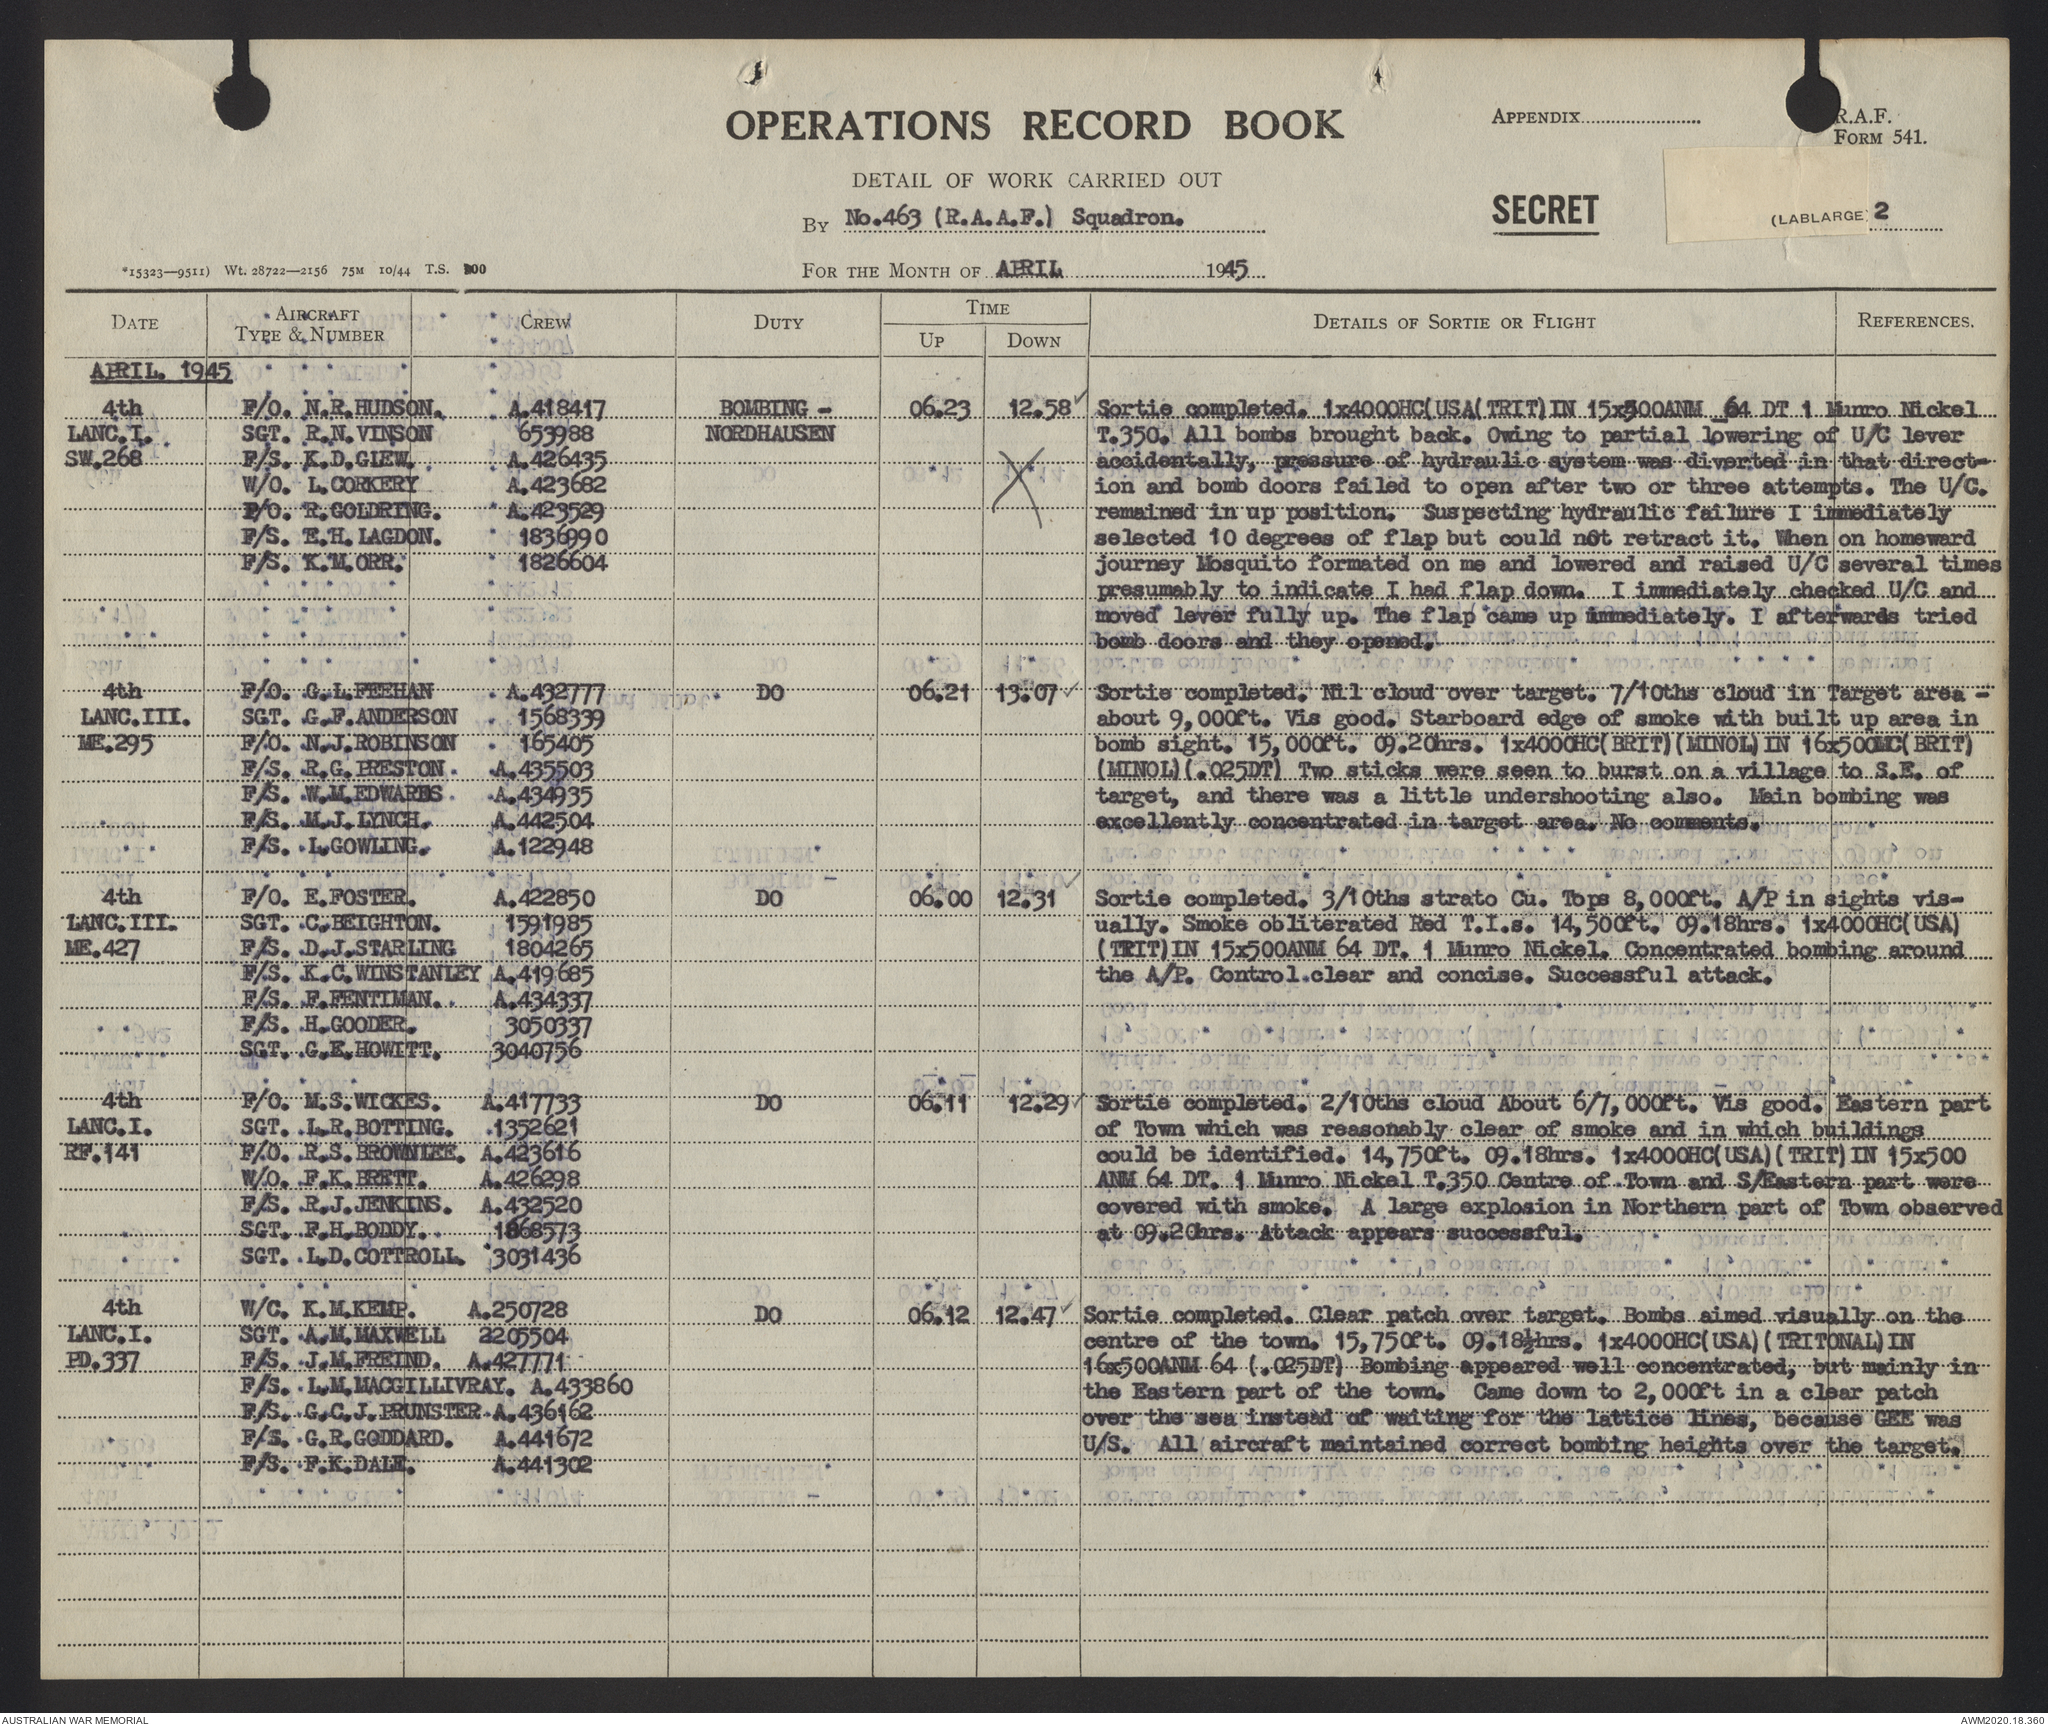 OPERATIONS RECORD BOOK
APPENDIX
R.A.F.
FORM 541.
DETAIL OF WORK CARRIED OUT
BY No.463 (R.A.A.F.) Squadron.
SECRET
(LABLARGE) 2
*15323—9511) Wt. 28722—2156 75M 10/44 T.S. 700
FOR THE MONTH OF APRIL 1945
DATE
AIRCRAFT TYPE & NUMBER
CREW
DUTY
TIME
UP
DOWN
DETAILS OF SORTIE OR FLIGHT
REFERENCES.
APRIL. 1945
4th F/O. N.R.HUDSON. A.418417 BOMBING - 06.23 12.58 Sortie completed. 1x4000HC(USA(TRIT)IN 15x500ANM 64 DT 1 Munro Nickel
LANC.I. SGT. R.N.VINSON 653988 NORDHAUSEN T.350. All bombs brought back. Owing to partial lowering of U/C lever
SW.268 F/S. K.D.GIEW. A.426435 accidentally, pressure of hydraulic system was diverted in that direct-
W/O. L.CORKERY A.423682 ion and bomb doors failed to open after two or three attempts. The U/C.
F/O. R.GOLDRING. A.423529 remained in up position. Suspecting hydraulic failure I immediately
F/S. E.H.LAGDON. 1836990 selected 10 degrees of flap but could not retract it. When on homeward
F/S. K.M.ORR. 1826604 journey Mosquito formated on me and lowered and raised U/C several times
presumably to indicate I had flap down. I immediately checked U/C and
moved lever fully up. The flap came up immediately. I afterwards tried
bomb doors and they opened.
4th F/O. G.L.FEEHAN A.432777 DO 06.21 13.07 Sortie completed. Nil cloud over target. 7/10ths cloud in Target area -
LANC.III. SGT. G.F.ANDERSON 1568339 about 9,000ft. Vis good. Starboard edge of smoke with built up area in
ME.295 F/O. N.J.ROBINSON 165405 bomb sight. 15,000ft. 09.20hrs. 1x4000HC(BRIT)(MINOL)IN 16x500MC(BRIT)
F/S. R.G.PRESTON. A.435503 (MINOL)(.025DT) Two sticks were seen to burst on a village to S.E. of
F/S. W.M.EDWARDS A.434935 target, and there was a little undershooting also. Main bombing was
F/S. M.J.LYNCH. A.442504 excellently concentrated in target area. No comments.
F/S. L.GOWLING. A.122948
4th F/O. E.FOSTER. A.422850 DO 06.00 12.31 Sortie completed. 3/10ths strato Cu. Tops 8,000ft. A/P in sights vis-
LANC.III. SGT. C.BEIGHTON. 1591985 ually. Smoke obliterated Red T.I.s. 14,500ft. 09.18hrs. 1x4000HC(USA)
ME.427 F/S. D.J.STARLING 1804265 (TRIT)IN 15x500ANM 64 DT. 1 Munro Nickel. Concentrated bombing around
F/S. K.C.WINSTANLEY A.419685 the A/P. Control clear and concise. Successful attack.
F/S. F.FENTIMAN. A.434337
F/S. H.GOODER. 3050337
SGT. G.E.HOWITT. 3040756
4th F/O. M.S.WICKES. A.417733 DO 06.11 12.29 Sortie completed. 2/10ths cloud About 6/7,000ft. Vis good. Eastern part
LANC.I. SGT. L.R.BOTTING. 1352621 of Town which was reasonably clear of smoke and in which buildings
RF.141 F/O. R.S.BROWNLEE. A.423616 could be identified. 14,750ft. 09.18hrs. 1x4000HC(USA)(TRIT)IN 15x500
W/O. F.K.BRETT. A.426298 ANM 64 DT. 1 Munro Nickel T.350 Centre of Town and S/Eastern part were
F/S. R.J.JENKINS. A.432520 covered with smoke. A large explosion in Northern part of Town observed
SGT. F.H.BODDY. 1868573 at 09.20hrs. Attack appears successful.
SGT. L.D.COTTROLL. 3031436
4th W/C. K.M.KEMP. A.250728 DO 06.12 12.47 Sortie completed. Clear patch over target. Bombs aimed visually on the
LANC.I. SGT. A.M.MAXWELL 2205504 centre of the town. 15,750ft. 09.18½hrs. 1x4000HC(USA)(TRITONAL)IN
PD.337 F/S. J.M.FREIND. A.427771 16x500ANM 64 (.025DT) Bombing appeared well concentrated, but mainly in
F/S. L.M.MACGILLIVRAY. A.433860 the Eastern part of the town. Came down to 2,000ft in a clear patch
F/S. G.C.J.PRUNSTER A.436162 over the sea instead of waiting for the lattice lines, because GEE was
F/S. G.R.GODDARD. A.441672 U/S. All aircraft maintained correct bombing heights over the target.
F/S. F.K.DALE. A.441302
AUSTRALIAN WAR MEMORIAL
AWM2020.18.360